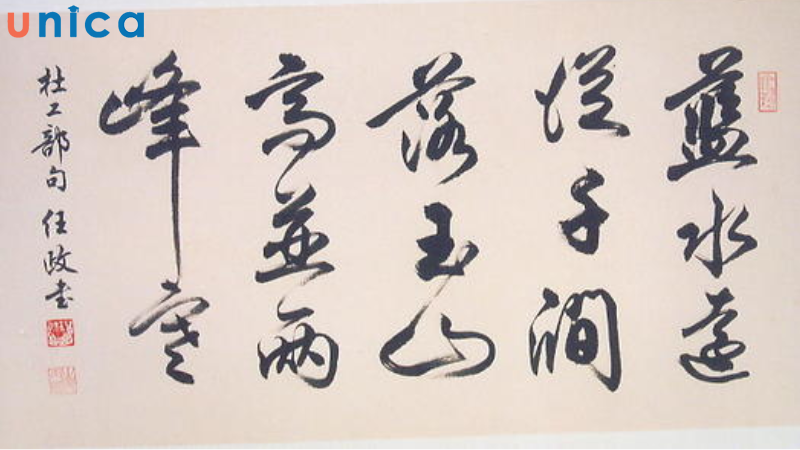 unica
藍水遠
從千澗
落玉山
高並兩
峰寒
杜工部句 任政書